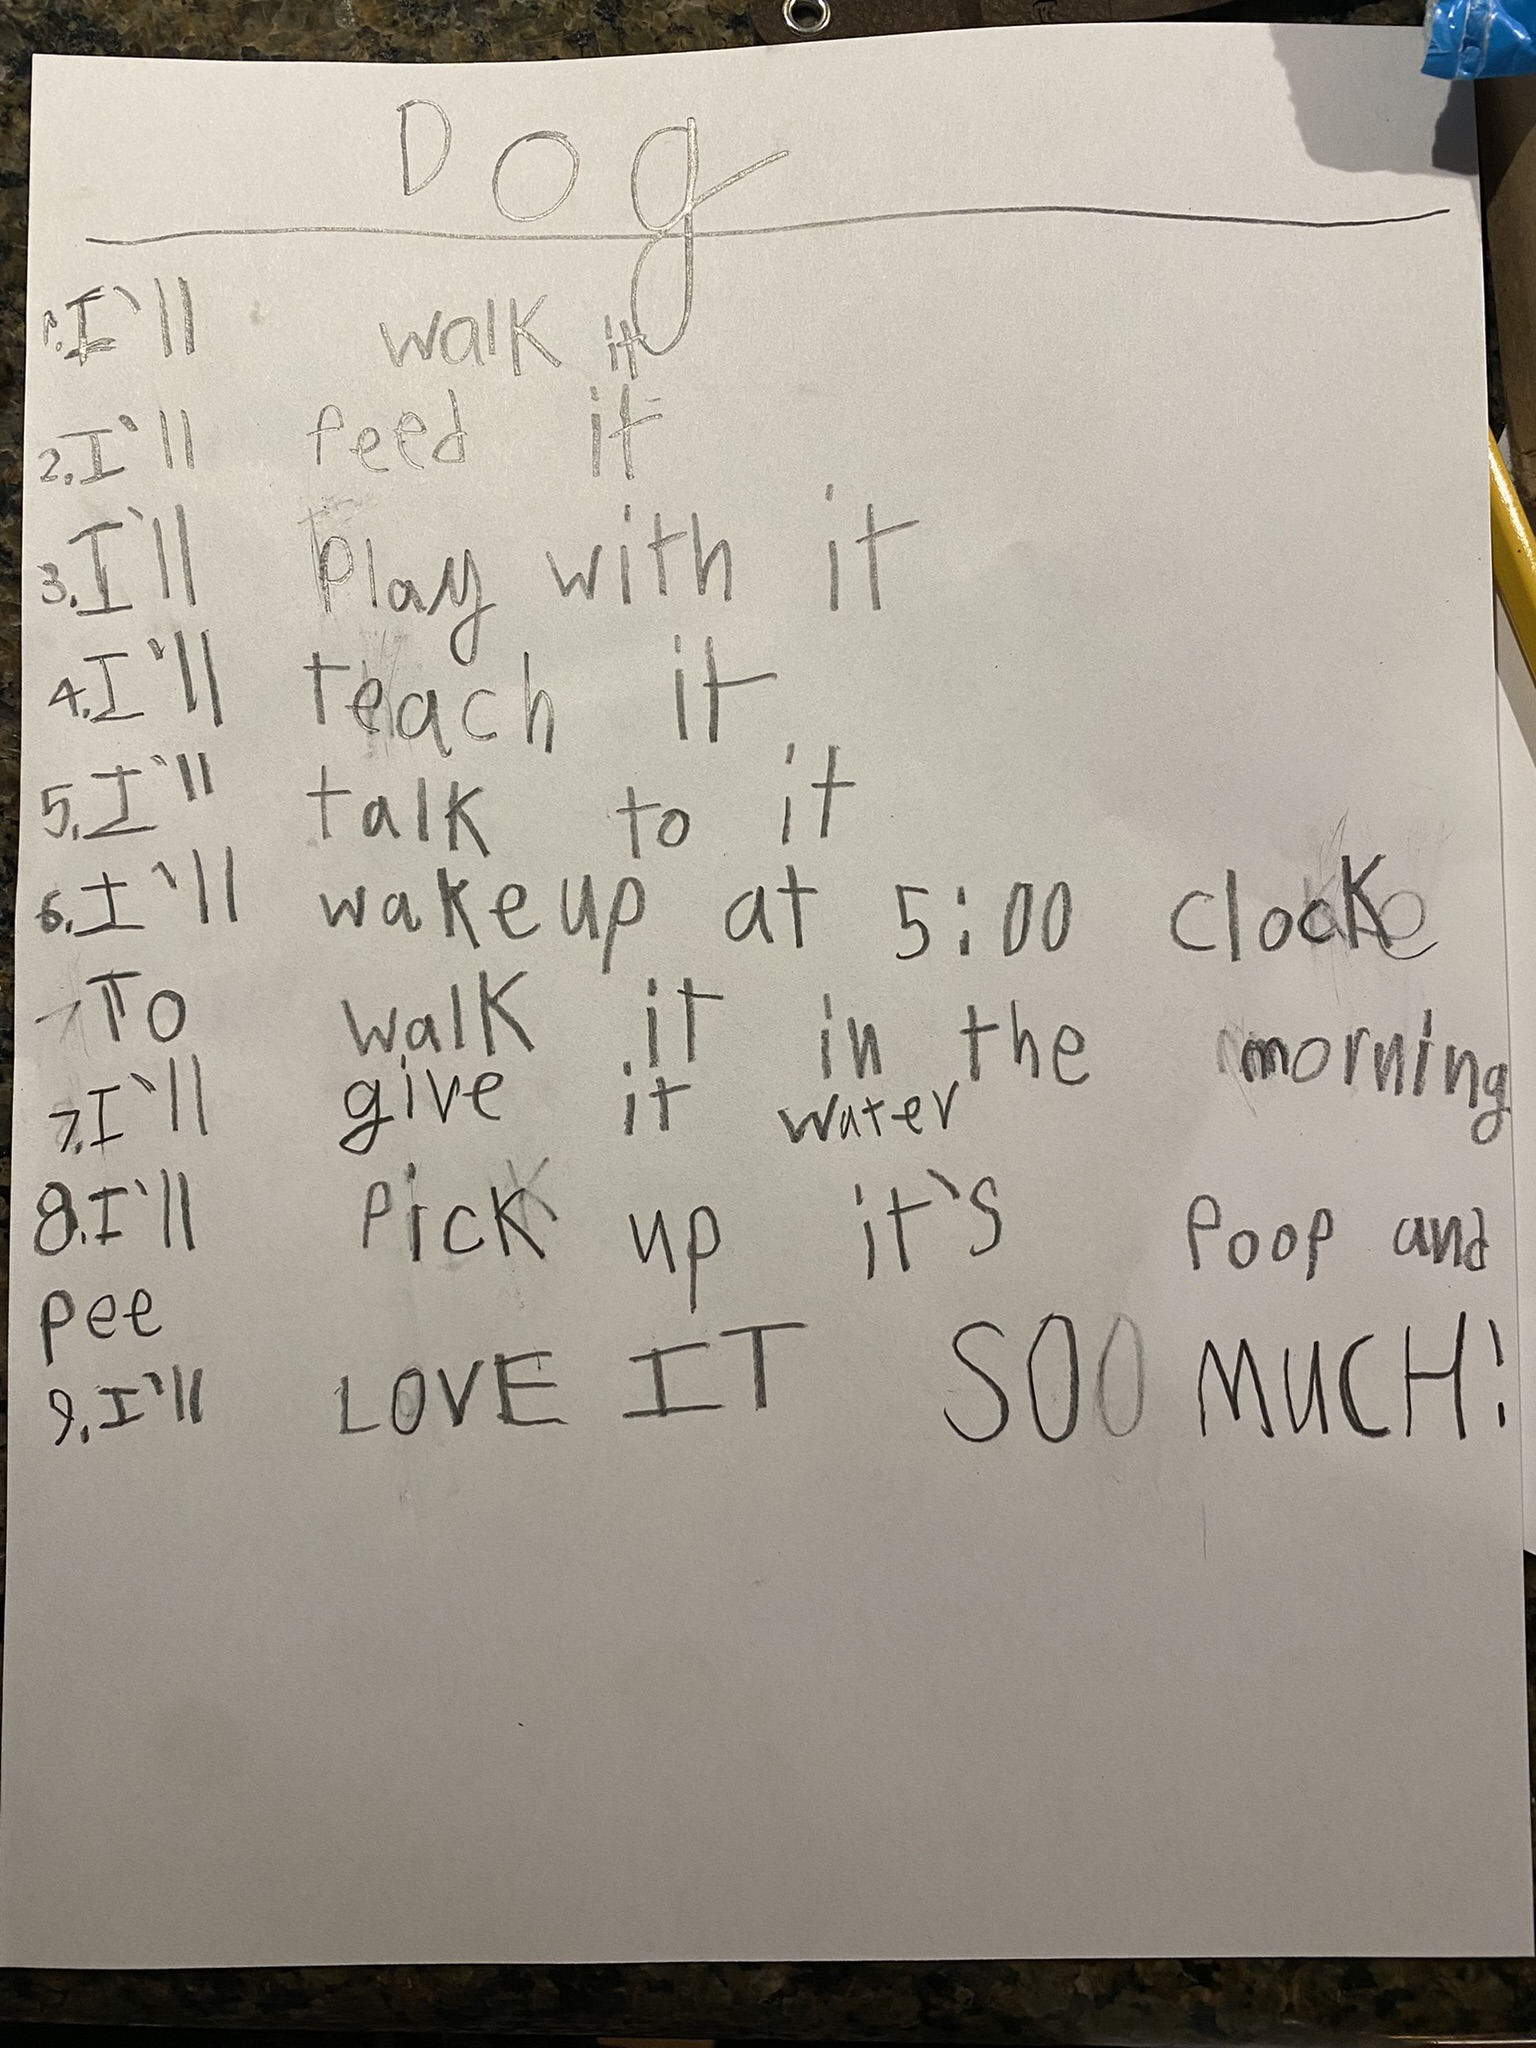 Dog
1. I'll walk it
2. I'll feed it
3. I'll Play with it
4. I'll teach it
5. I'll talk to it
6. I'll wake up at 5:00 clock
To walk it in the morning
7. I'll give it water
8. I'll Pick up it's Poop and
pee
9. I'll LOVE IT SOO MUCH!